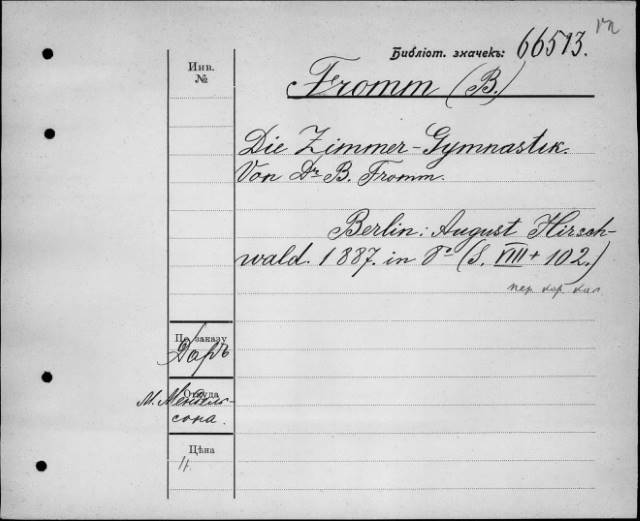 Библіот. значекъ: 66513.
Инв.
№
Fromm (B.)
Die Zimmer-Gymnastik.
Von Dr B. Fromm.
Berlin: August Hirsch-
wald. 1887. in 8º (S. VIII + 102.)
пер. кар.
По заказу
Даръ
Откуда
М. Мендель-
сона.
Цѣна